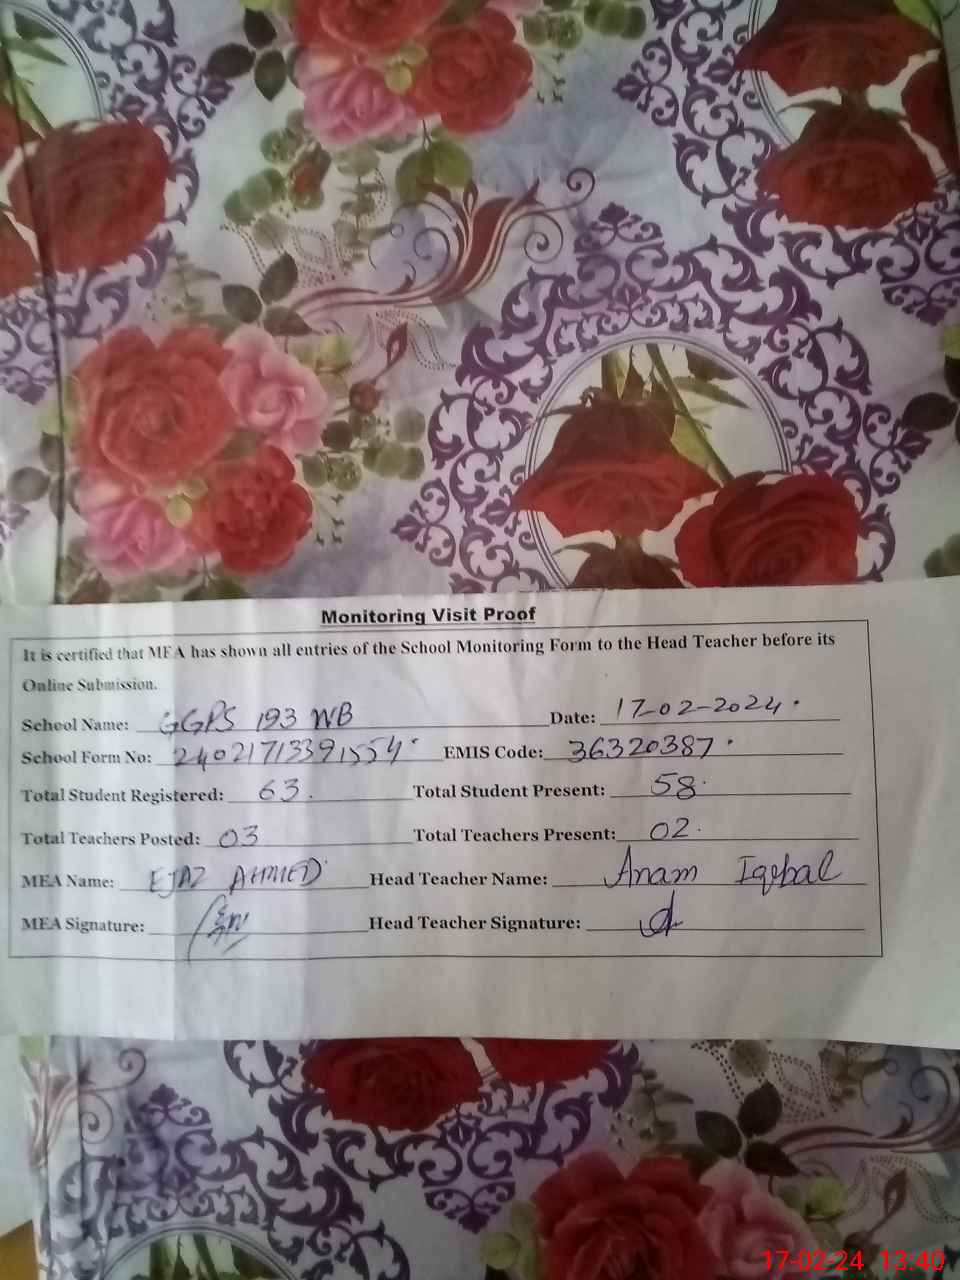 Monitoring Visit Proof
It is certified that MEA has shown all entries of the School Monitoring Form to the Head Teacher before its
Online Submission.
School Name: GGPS 193 WB Date: 17-02-2024.
School Form No: 24021713391554. EMIS Code: 36320387.
Total Student Registered: 63. Total Student Present: 58.
Total Teachers Posted: 03 Total Teachers Present: 02.
MEA Name: EJAZ AHMED Head Teacher Name: Anam Iqbal
MEA Signature: Head Teacher Signature:
17-02-24 13:40